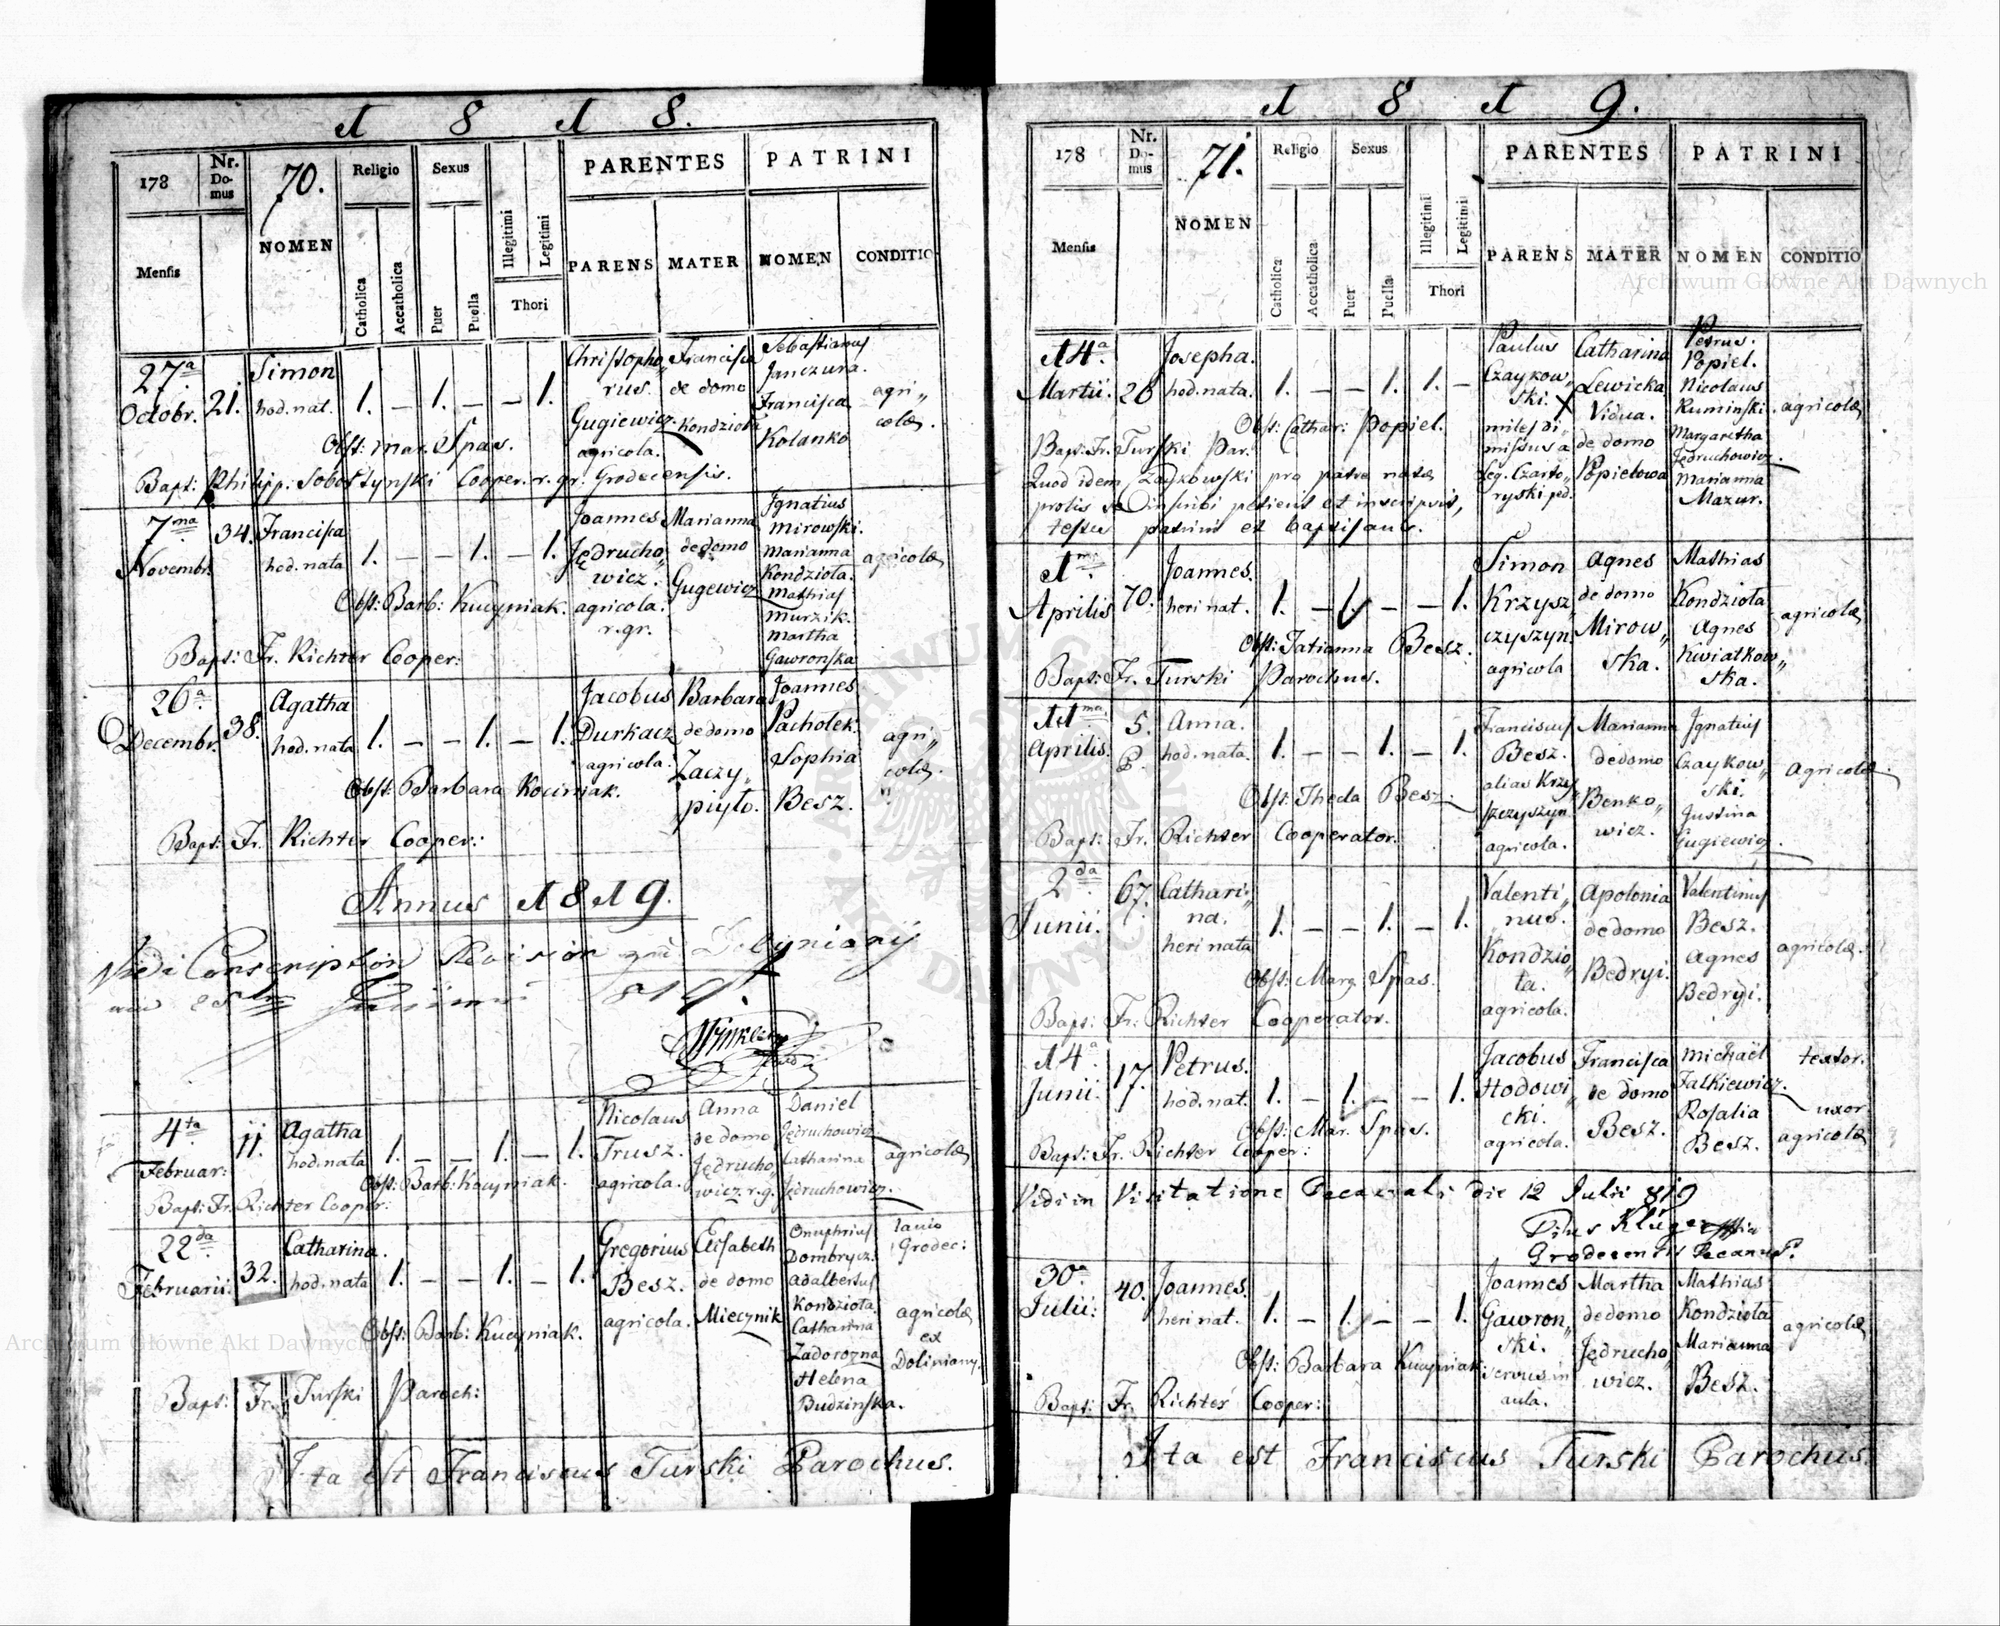 1 8 1 8.
178
Nr. Do- mus
70.
NOMEN
Religio
Sexus
PARENTES
PATRINI
Mensis
Catholica
Accatholica
Puer
Puella
Illegitimi
Legitimi
Thori
PARENS
MATER
NOMEN
CONDITIO
27a Octobr. 21. Simon hod. nat. 1. – 1. – – 1.
Christopho„ rus. Gugiewicz. agricola.
Francisca de domo Kondziota
Sebastianus Janczura. Francisca Kolanko
agri„ colæ.
Obst: Mar. Spas.
Bapt: Philipp: Sobostynski Cooper. r. gr. Grodecensis.
7ma Novembr. 34. Francisca hod. nata 1. – – 1. – 1.
Joannes Jędrucho„ wicz. agricola. r. gr.
Marianna de domo Gugewicz
Ignatius Mirowski. Marianna Kondziota. Mathias Murzik. Martha Gawronska
agricolæ
Obst: Barb: Kucyniak.
Bapt: Fr. Richter Cooper:
26a Decembr. 38. Agatha hod. nata 1. – – 1. – 1.
Jacobus Durkacz agricola.
Barbara de domo Zaczy„ piyto.
Joannes Pacholek. Sophia Besz.
agri„ colæ.
Obst: Barbara Kociniak.
Bapt: Fr. Richter Cooper:
Annus 1819.
Vidi Conscription Revision
1819.
4ta Februar: 11. Agatha hod. nata 1. – – 1. – 1.
Nicolaus Trusz. agricola.
Anna de domo Jędrucho„ wicz. r. g.
Daniel Jędruchowicz Catharina Jędruchowicz.
agricolæ
Obst: Barb: Kucyniak.
Bapt: Fr. Richter Cooper:
22da Februarii: 32. Catharina. hod. nata 1. – – 1. – 1.
Gregorius Besz. agricola.
Elisabeth de domo Miecznik
Onuphrius Dombrycz. Adalbertus Kondziota Catharina Zadorozna Helena Budzinska.
lanio Grodec: agricolæ ex Doliniany.
Obst: Barb: Kucyniak.
Bapt: Fr. Turski Paroch:
Ita est Franciscus Turski Parochus.
1 8 1 9.
178
Nr. Do- mus
71.
NOMEN
Religio
Sexus
PARENTES
PATRINI
Mensis
Catholica
Accatholica
Puer
Puella
Illegitimi
Legitimi
Thori
PARENS
MATER
NOMEN
CONDITIO
14a Martii. 28 Josepha. hod. nata. 1. – – 1. 1. –
Paulus Czaykow„ ski. X miles di„ missus a Leg. Czarto„ ryski ped.
Catharina Lewicka Vidua. de domo Popielowa
Petrus. Popiel. Nicolaus Ruminski. Margaretha Jędruchowicz. Marianna Mazur.
agricolæ
Obst: Cathar: Popiel.
Bapt: Fr. Turski Par.
Quod idem Czaykowski pro patre natæ
prolis se inscribi petierit et inscripsit,
testes patrini et baptisans.
1ma Aprilis 70. Joannes. heri nat. 1. – 1. – – 1.
Simon Krzysz„ czyszyn. agricola
Agnes de domo Mirow„ ska.
Mathias Kondziota Agnes Kwiatkow„ ska.
agricolæ
Obst: Tatianna Besz.
Bapt: Fr. Turski Parochus.
11ma Aprilis. 5. Anna. hod. nata. 1. – – 1. – 1.
Franciscus Besz. alias Krzy„ szczyszyn. agricola.
Marianna de domo Benko„ wicz.
Ignatius Czaykow„ ski. Justina Gugiewicz.
Agricolæ.
Obst: Theda Besz.
Bapt: Fr. Richter Cooperator.
2da Junii. 67. Cathari„ na. heri nata 1. – – 1. – 1.
Valenti„ nus. Kondzio„ ta. agricola.
Apolonia de domo Bedryi.
Valentinus Besz. Agnes Bedryi.
agricolæ.
Obst: Marg: Spas.
Bapt: Fr: Richter Cooperator.
14a Junii. 17. Petrus. hod. nat. 1. – 1. – – 1.
Jacobus Hodowi„ cki. agricola.
Francisca de domo Besz.
Michaël Falkiewicz. Rosalia Besz.
textor. uxor agricolæ
Obst: Mar. Spas.
Bapt: Fr. Richter Cooper:
Vidi in Visitatione Decanali die 12 Julii 819
Kluger
Grodecensis Decanus.
30a Julii: 40. Joannes. heri nat. 1. – 1. – – 1.
Joannes Gawron„ ski. servus in aula.
Martha de domo Jędrucho„ wicz.
Mathias Kondziota Marianna Besz.
agricolæ
Obst: Barbara Kucyniak
Bapt: Fr. Richter Cooper:
Ita est Franciscus Turski Parochus.
Archiwum Główne Akt Dawnych
Archiwum Główne Akt Dawnych